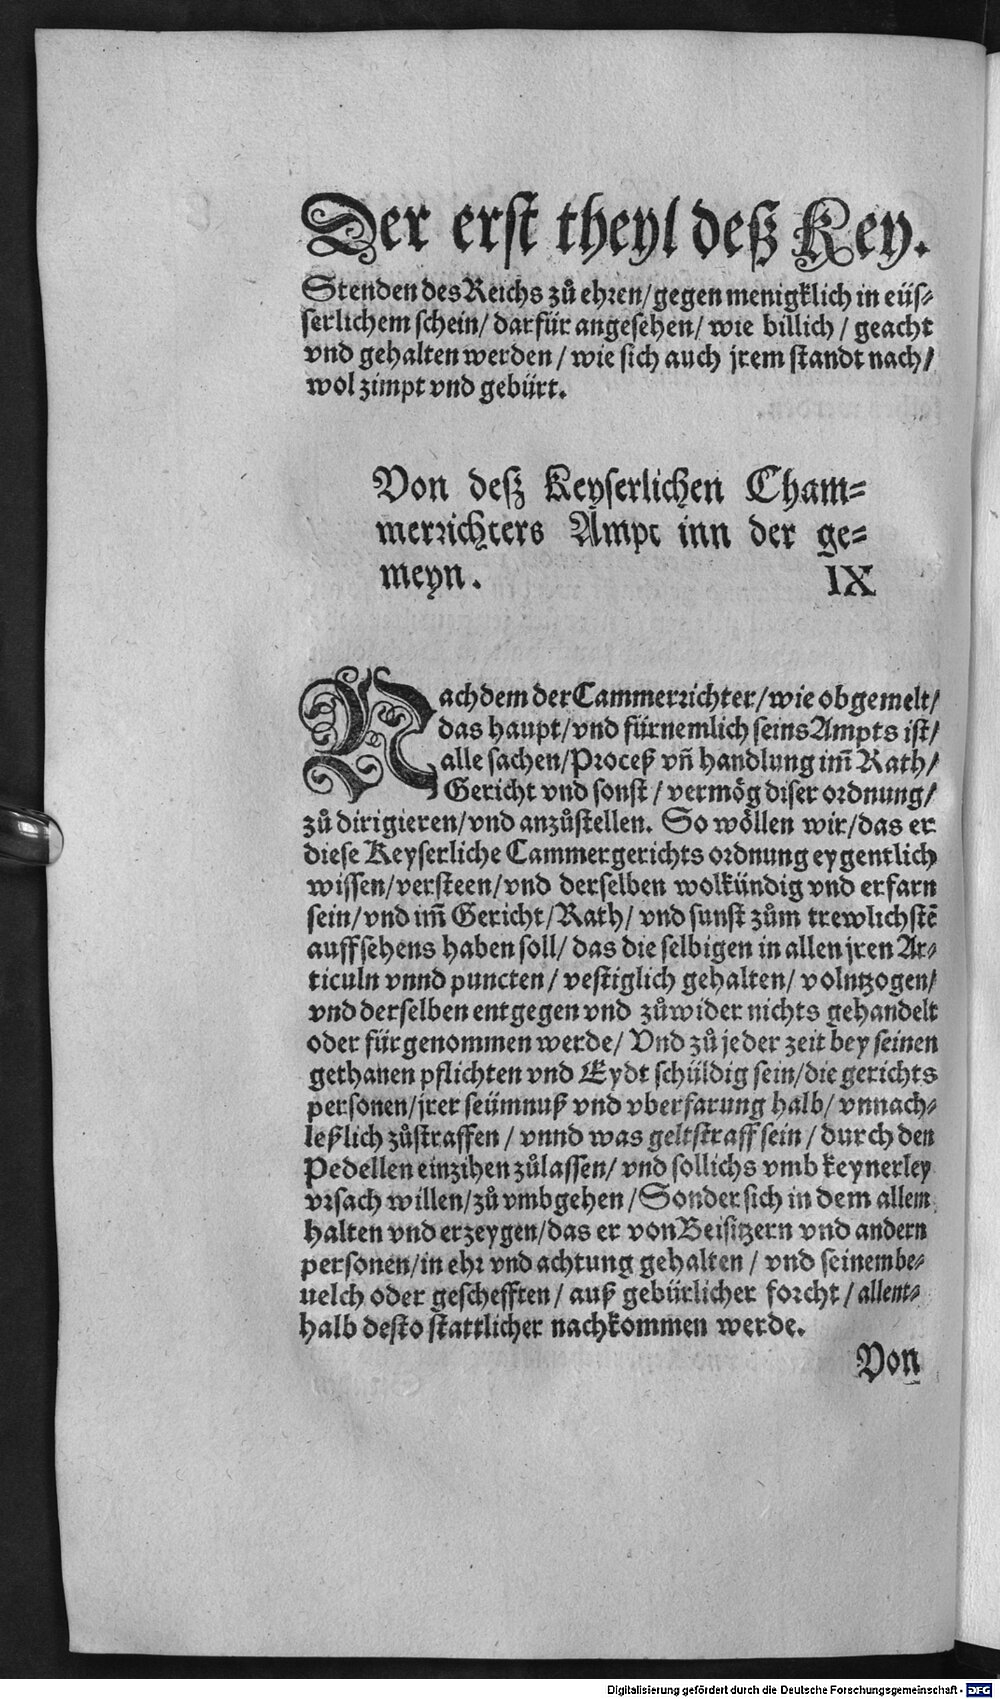 Der erst theyl deß Key.
Stenden des Reichs zů ehren/ gegen menigklich in eüs-
serlichem schein/ darfür angesehen/ wie billich/ geacht
vnd gehalten werden/ wie sich auch jrem standt nach/
wol zimpt vnd gebürt.
Von deß Keyserlichen Cham-
merrichters Ampt inn der ge-
meyn. IX
Nachdem der Cammerrichter/ wie obgemelt/
das haupt/ vnd fürnemlich seins Ampts ist/
alle sachen/ Proceß vñ handlung im̃ Rath/
Gericht vnd sonst/ vermög diser ordnung/
zů dirigieren/ vnd anzůstellen. So wöllen wir/ das er
diese Keyserliche Cammergerichts ordnung eygentlich
wissen/ versteen/ vnd derselben wolkündig vnd erfarn
sein/ vnd im̃ Gericht/ Rath/ vnd sunst zům trewlichstē
auffsehens haben soll/ das die selbigen in allen jren Ar-
ticuln vnnd puncten/ vestiglich gehalten/ volntzogen/
vnd derselben entgegen vnd zůwider nichts gehandelt
oder fürgenommen werde/ Vnd zů jeder zeit bey seinen
gethanen pflichten vnd Eydt schüldig sein/ die gerichts
personen/ jrer seümnuß vnd vberfarung halb/ vnnach-
leßlich zůstraffen/ vnnd was geltstraff sein/ durch den
Pedellen einzihen zůlassen/ vnd sollichs vmb keynerley
vrsach willen/ zů vmbgehen/ Sonder sich in dem allem
halten vnd erzeygen/ das er von Beisitzern vnd andern
personen/ in ehr vnd achtung gehalten/ vnd seinem be-
uelch oder geschefften/ auß gebürlicher forcht/ allent-
halb desto stattlicher nachkommen werde.
Von
Digitalisierung gefördert durch die Deutsche Forschungsgemeinschaft - DFG